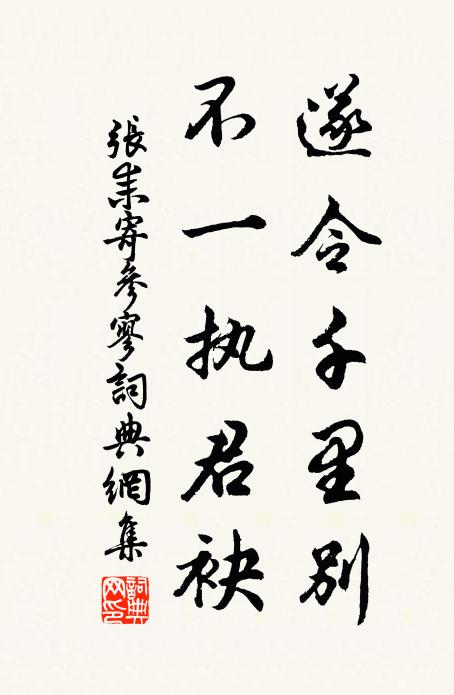 遂令千里别
不一执君袂
張耒寄參寥詞典網集
詞典網印